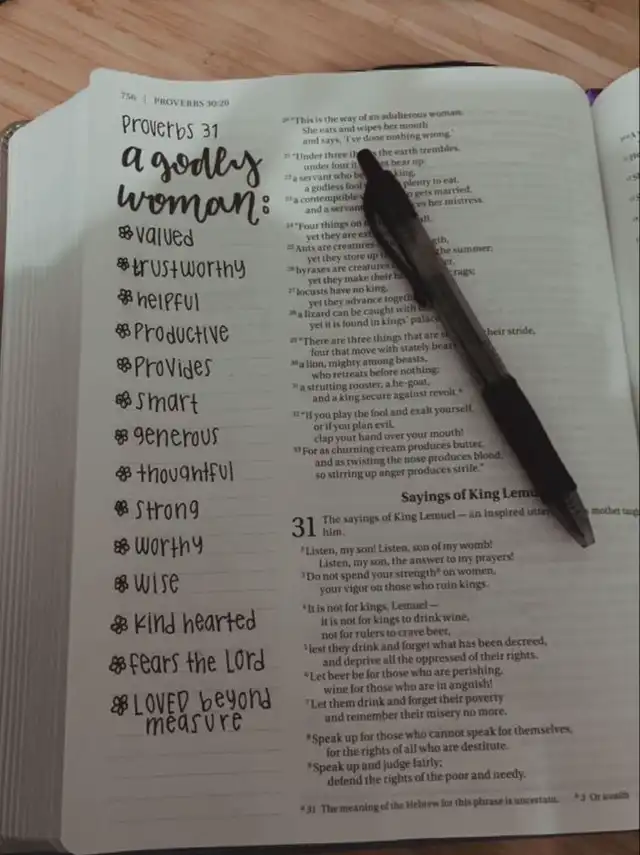 756 | PROVERBS 30:20
Proverbs 31
a godly
woman:
valued
trustworthy
helpful
Productive
Provides
smart
generous
thoughtful
strong
worthy
wise
kind hearted
fears the Lord
LOVED beyond
measure
20 "This is the way of an adulterous woman:
She eats and wipes her mouth
and says, 'I've done nothing wrong.'
21 "Under three the earth trembles,
under four it bear up:
22 a servant who king,
a godless fool plenty to eat,
23 a contemptible gets married,
and a servant her mistress.
24 "Four things on
yet they are
25 Ants are creatures
yet they store up the summer;
26 hyraxes are creatures
yet they make their crags;
27 locusts have no king,
yet they advance
28 a lizard can be caught with
yet it is found in kings'
29 "There are three things that are their stride,
four that move with stately
30 a lion, mighty among beasts,
who retreats before nothing;
31 a strutting rooster, a he-goat,
and a king secure against revolt.a
32 "If you play the fool and exalt yourself,
or if you plan evil,
clap your hand over your mouth!
33 For as churning cream produces butter,
and as twisting the nose produces blood,
so stirring up anger produces strife."
Sayings of King
31 The sayings of King Lemuel — an inspired mother
him.
2 Listen, my son! Listen, son of my womb!
Listen, my son, the answer to my prayers!
3 Do not spend your strengthb on women,
your vigor on those who ruin kings.
4 It is not for kings, Lemuel —
it is not for kings to drink wine,
not for rulers to crave beer,
5 lest they drink and forget what has been decreed,
and deprive all the oppressed of their rights.
6 Let beer be for those who are perishing,
wine for those who are in anguish!
7 Let them drink and forget their poverty
and remember their misery no more.
8 Speak up for those who cannot speak for themselves,
for the rights of all who are destitute.
9 Speak up and judge fairly;
defend the rights of the poor and needy.
a 31 The meaning of the Hebrew for this phrase is uncertain. b 3 Or wealth